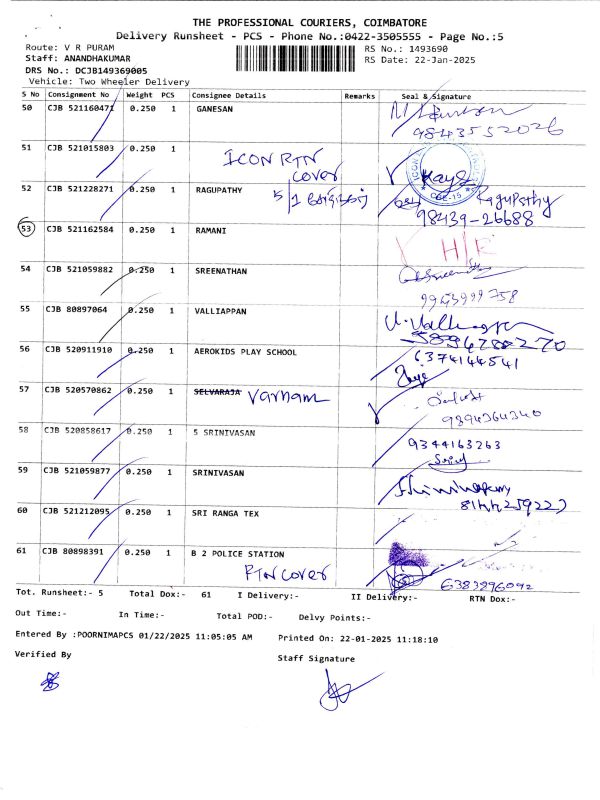 THE PROFESSIONAL COURIERS, COIMBATORE
Delivery Runsheet - PCS - Phone No.:0422-3505555 - Page No.:5
Route: V R PURAM
RS No.: 1493690
Staff: ANANDHAKUMAR
RS Date: 22-Jan-2025
DRS No.: DCJB149369005
Vehicle: Two Wheeler Delivery
S No Consignment No Weight PCS Consignee Details Remarks Seal & Signature
50 CJB 521160471 0.250 1 GANESAN
9843552026
51 CJB 521015803 0.250 1
ICON RTN
cover
52 CJB 521228271 0.250 1 RAGUPATHY
Ragupathy
98439-26688
53 CJB 521162584 0.250 1 RAMANI
H/E
54 CJB 521059882 0.250 1 SREENATHAN
9943999758
55 CJB 80897064 0.250 1 VALLIAPPAN
56 CJB 520911910 0.250 1 AEROKIDS PLAY SCHOOL
6374144541
57 CJB 520570862 0.250 1 SELVARAJA Varnam
9894364340
58 CJB 520858617 0.250 1 S SRINIVASAN
9344163263
59 CJB 521059877 0.250 1 SRINIVASAN
60 CJB 521212095 0.250 1 SRI RANGA TEX
61 CJB 80898391 0.250 1 B 2 POLICE STATION
RTN cover
6383896092
Tot. Runsheet:- 5 Total Dox:- 61 I Delivery:- II Delivery:- RTN Dox:-
Out Time:- In Time:- Total POD:- Delvy Points:-
Entered By :POORNIMAPCS 01/22/2025 11:05:05 AM Printed On: 22-01-2025 11:18:10
Verified By
Staff Signature